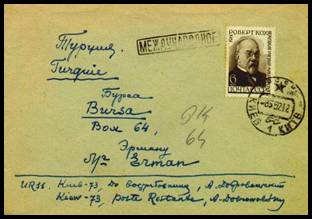 МЕЖДУНАРОДНОЕ
РОБЕРТ КОХ
6
ПОЧТА СССР
Турция,
Turquie
Бурса
Bursa
Box 64,
Эрману
Mr Erman
64
КИЕВ
КИЇВ
Киев-73, До востребования, А. Добровольский
Kiew-73, poste Restante, A. Dobrowolsky